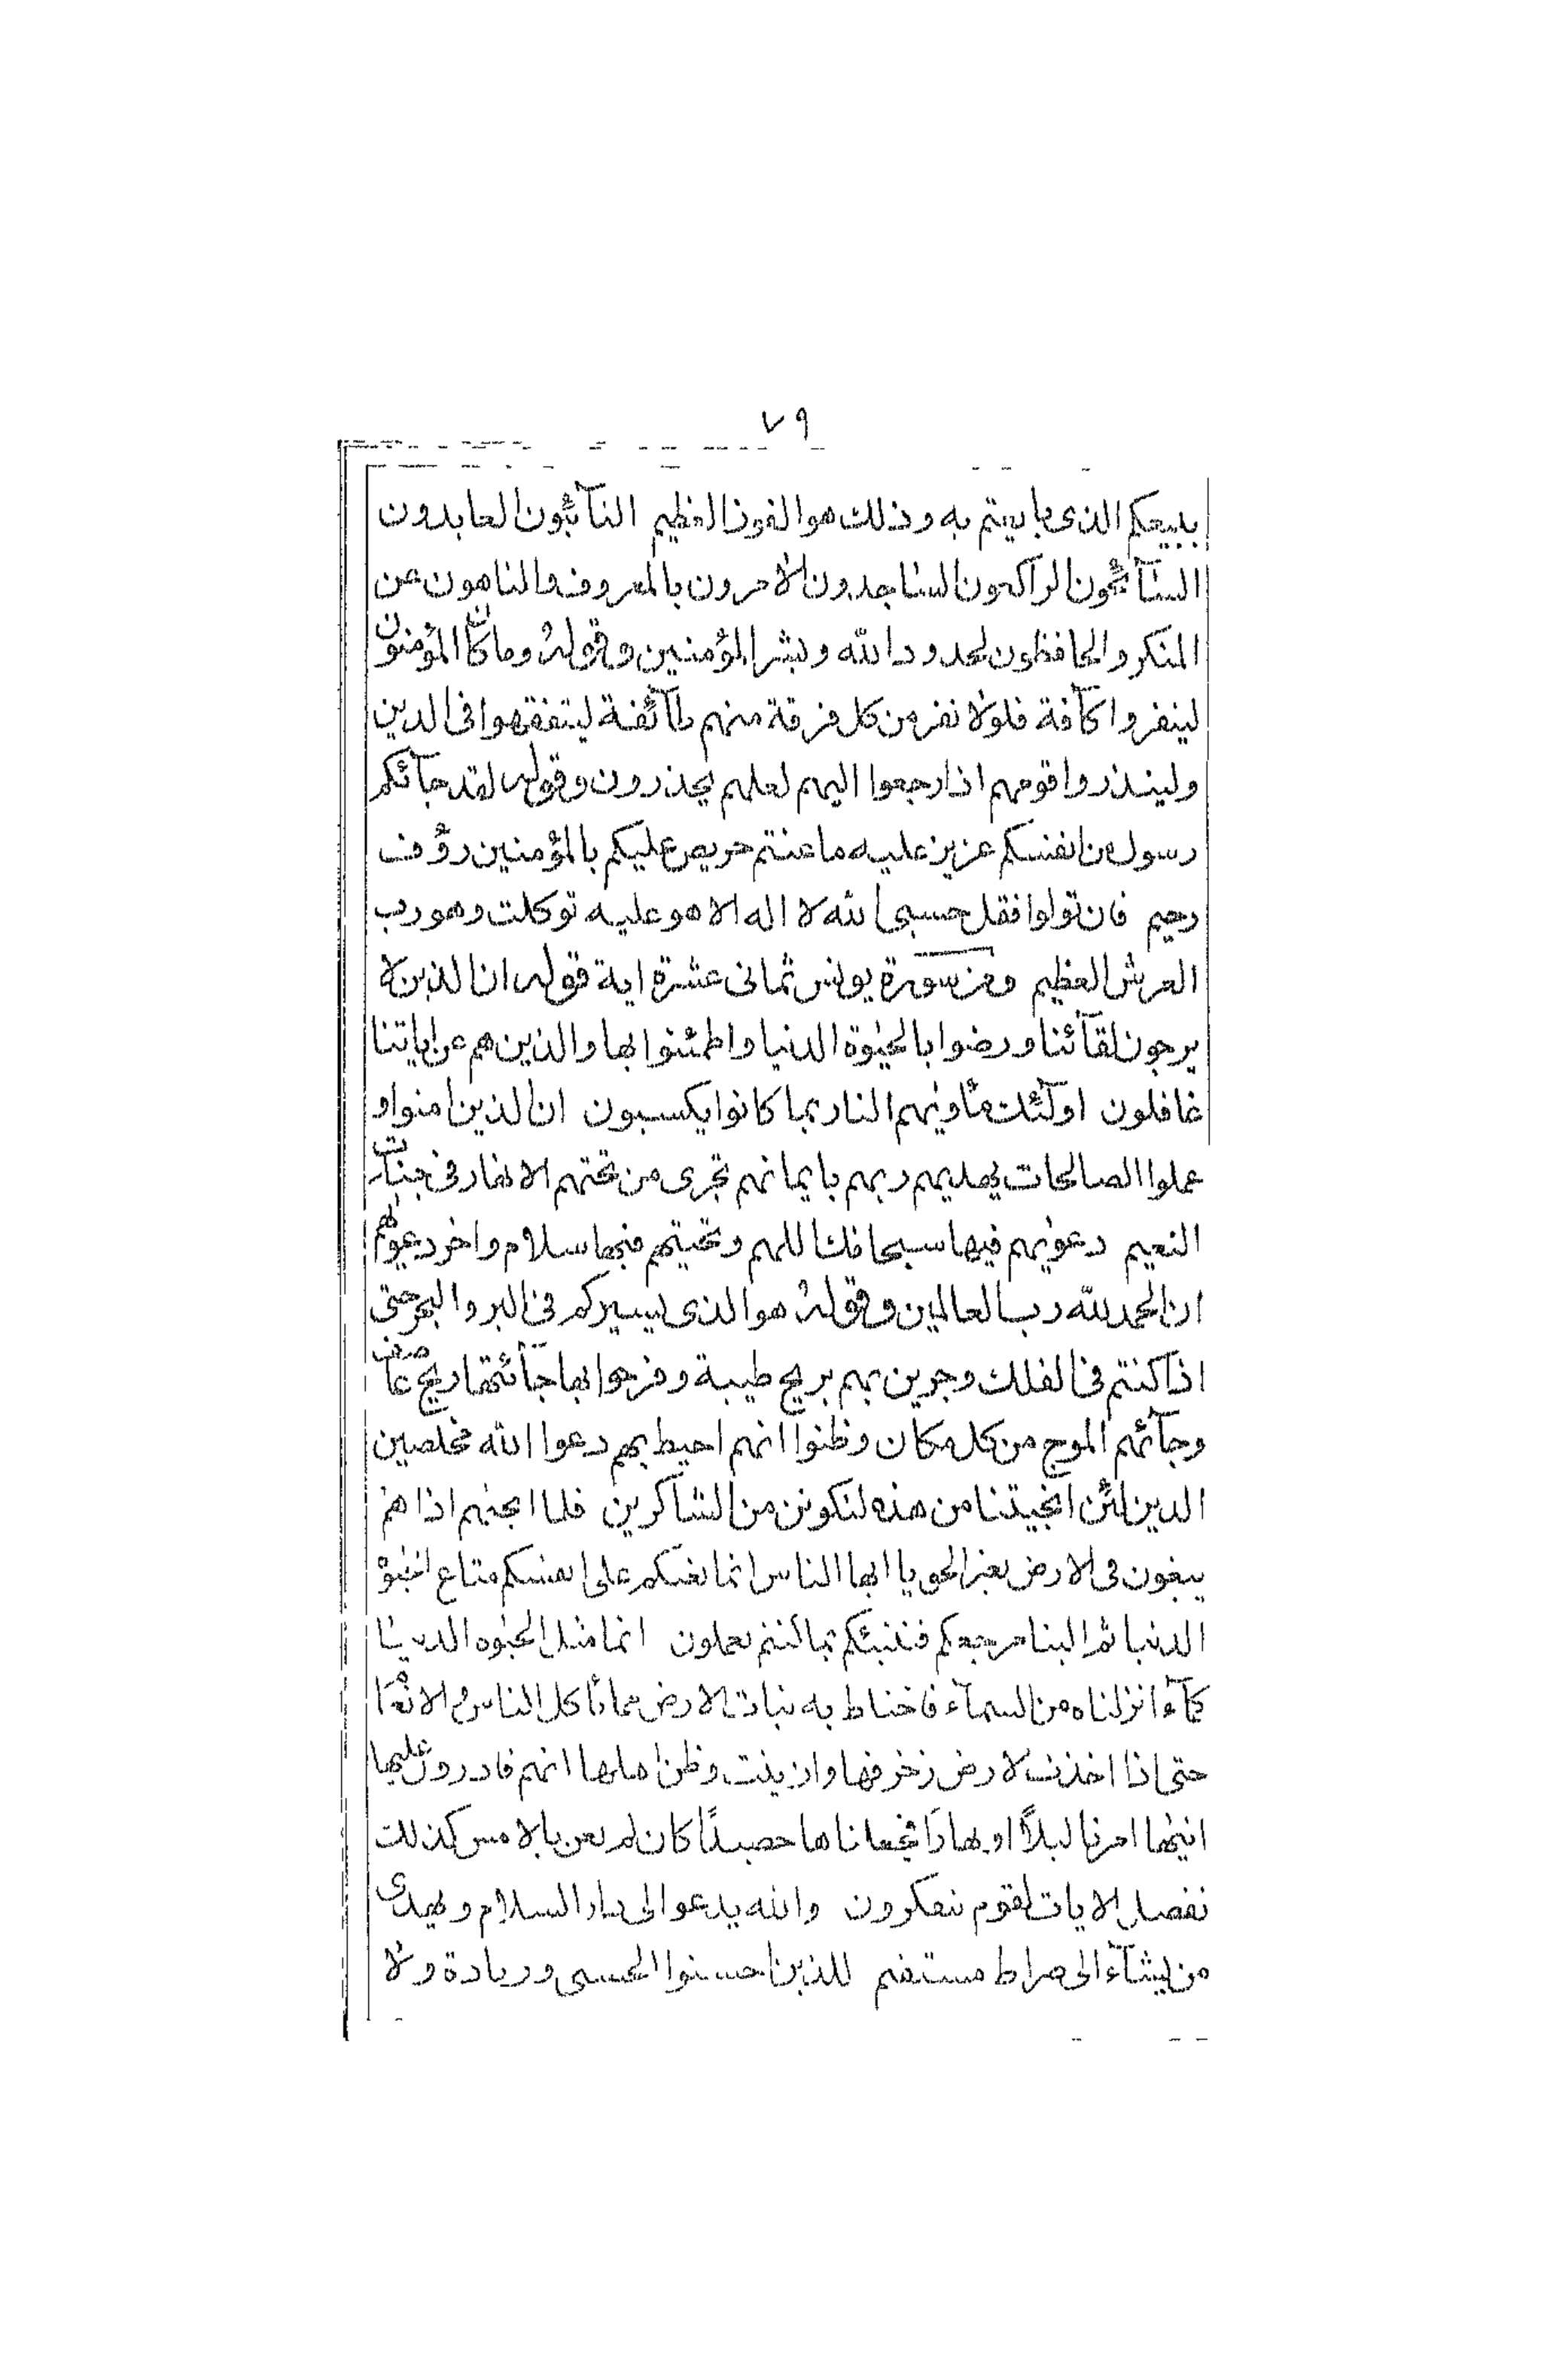 ٧٩
ببيعكم الذى بايعتم به وذلك هو الفوز العظيم التآئبون العابدون
السآئحون الرآكعون الساجدون الامرون بالمعروف والناهون عن
المنكر والحافظون لحدود الله وبشر المؤمنين وقوله وما كان المؤمنون
لينفروا كآفة فلولا نفر من كل فرقة منهم طآئفة ليتفقهوا فى الدين
ولينذروا قومهم اذا رجعوا اليهم لعلهم يحذرون وقوله لقد جآئكم
رسول من انفسكم عزيز عليه ما عنتم حريص عليكم بالمؤمنين رؤف
رحيم فان تولوا فقل حسبى الله لا اله الا هو عليه توكلت وهو رب
العرش العظيم ومن سورة يونس ثمانى عشرة اية قوله ان الذين لا
يرجون لقآئنا ورضوا بالحيوة الدنيا واطمئنوا بها والذين هم عن اياتنا
غافلون اولٓئك مأويهم النار بما كانوا يكسبون ان الذين امنوا و
عملوا الصالحات يهديهم ربهم بايمانهم تجرى من تحتهم الانهار فى جنات
النعيم دعويهم فيها سبحانك اللهم وتحيتهم فيها سلام واخر دعويهم
ان الحمد لله رب العالمين وقوله هو الذى يسيركم فى البر والبحر حتى
اذا كنتم فى الفلك وجرين بهم بريح طيبة وفرحوا بها جآئتها ريح عاصف
وجآئهم الموج من كل مكان وظنوا انهم احيط بهم دعوا الله مخلصين
الدين لئن انجيتنا من هذه لنكونن من الشاكرين فلما انجيهم اذا هم
يبغون فى الارض بغير الحق يا ايها الناس انما بغيكم على انفسكم متاع الحيوة
الدنيا ثم الينا مرجعكم فننبئكم بما كنتم تعملون انما مثل الحيوة الدنيا
كمآء انزلناه من السمآء فاختاط به نبات الارض مما تأكل الناس والانعام
حتى اذا اخذت الارض زخرفها وازينت وظن اهلها انهم قادرون عليها
اتيها امرنا ليلاً او نهاراً فجعلناها حصيداً كان لم تغن بالامس كذلك
نفصل الايات لقوم يتفكرون والله يدعوا الى دار السلام ويهدى
من يشآء الى صراط مستقيم للذين احسنوا الحسنى وزيادة ولا